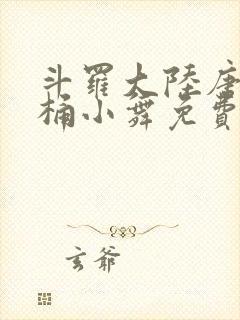 斗羅大陸唐
桶小舞免費
玄爺